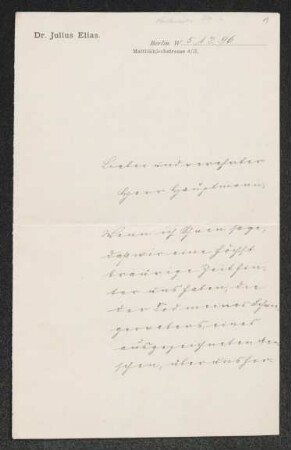 Dr. Julius Elias.
Berlin W. 5.12.96
Matthäikirchstrasse 4/II.
Lieber und verehrter
Herr Hauptmann,
Wenn ich Ihnen sage,
daß wir eine höchst
traurige Zeit hin-
ter uns haben, die
der Tod meines Schwie-
gervaters, eines
ausgezeichneten Men-
schen, über uns her-